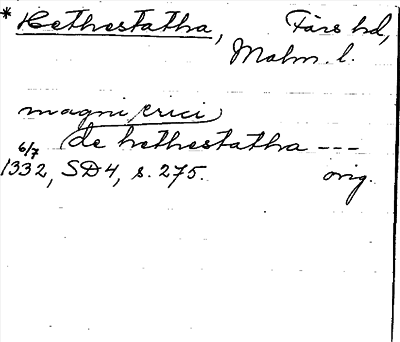 * Hethestatha, Färs hd,
Malm. l.
magni erici
de hethestatha ---
6/7
1332, SD4, s. 275. orig.